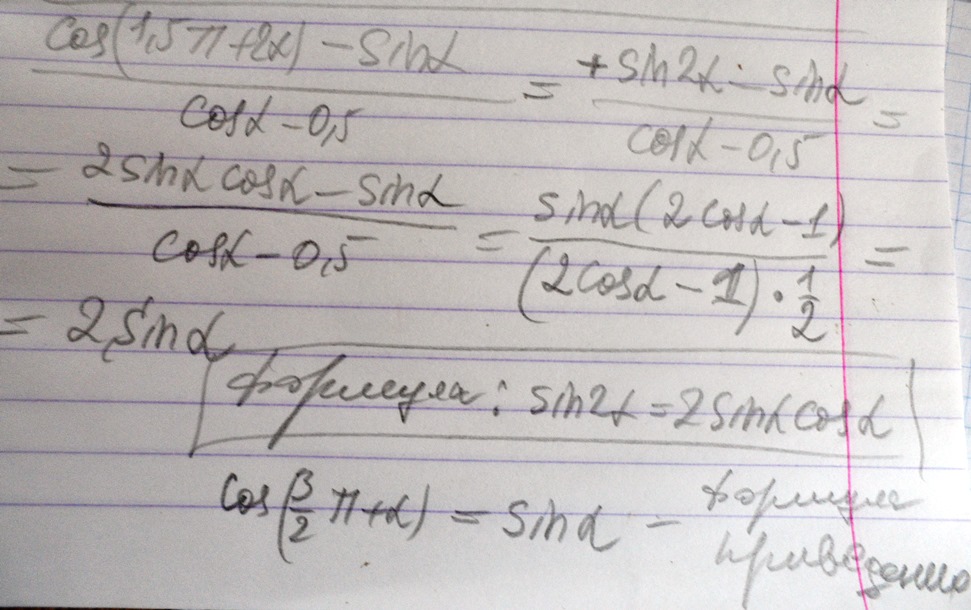 cos(1,5π+2α) - sinα / cosα - 0,5 = +sin2α - sinα / cosα - 0,5 =
= 2sinα cosα - sinα / cosα - 0,5 = sinα(2cosα - 1) / (2cosα - 1)·1/2 =
= 2sinα
формула: sin2α = 2sinα cosα
cos(3/2 π+α) = sinα - формула
приведения